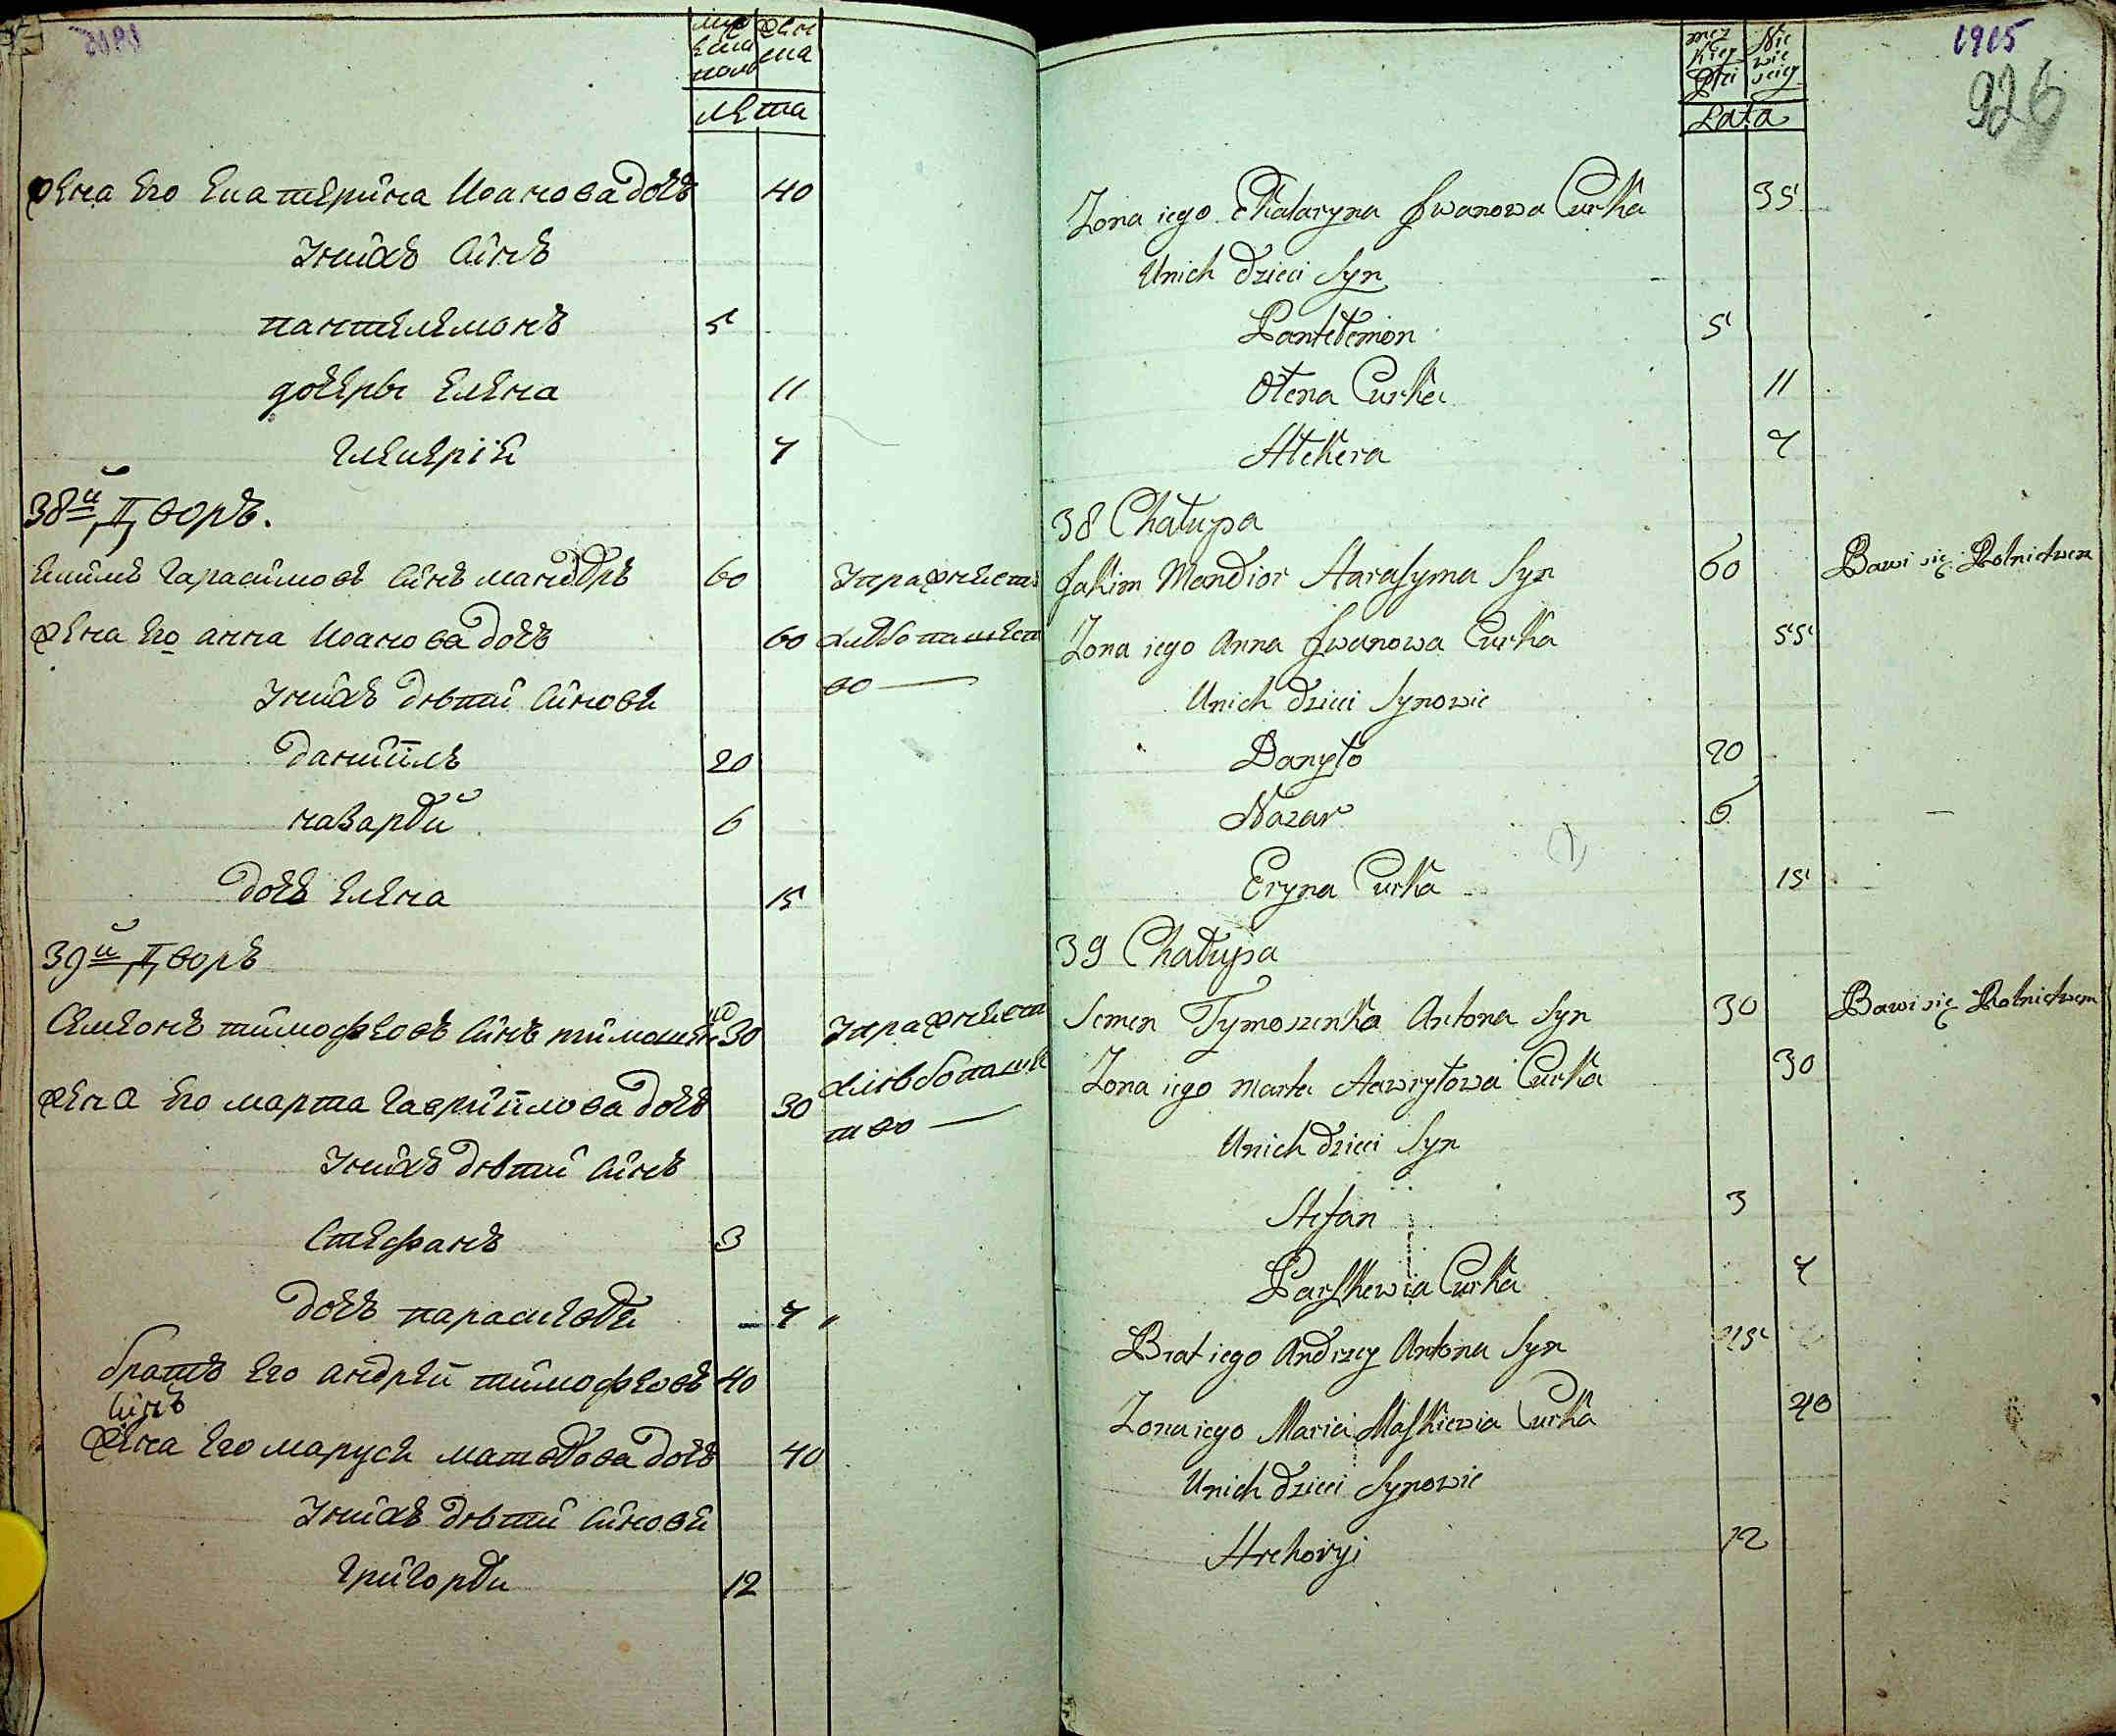 муж
еска
полъ
женъ
ска
лета
жена его екатерина Иоанова дочъ 40
З нихъ синъ
пантелемонъ 5
дочеры елена 11
гликерия 7
38й дворъ.
екимъ гарасимовъ синъ мандзръ 60
жена его анна Иоанова дочъ 60
З нихъ дѣти синове
даниилъ 20
назарій 6
дочъ елена 15
39й дворъ
Симеонъ тимофеовъ синъ тимошенко 30
жена его марта гавриилова дочъ 30
З нихъ дѣти синъ
Стефанъ 3
дочъ параскевія 7
братъ его андрей тимофеовъ 40
синъ
жена его маруся матвіова дочъ 40
З нихъ дѣти синови
григорій 12
1915
926
męz
kiey
Płci
Nie
wie
sciey
Lata
Zona iego Kataryna Jwanowa Curka 35
Unich dzieci Syn
Pantełemon 5
Ołena Curka 11
Hłekera 7
38 Chałupa
Jakim Mandior Harasyma Syn 60 Bawi się Rolnictwem
Zona iego Anna Jwanowa Curka 55
Unich dzieci Synowie
Danyło 20
Nazar 6
Eryna Curka 15
39 Chałupa
Semen Tymoszenka Antona Syn 30 Bawi się Rolnictwem
Zona iego Marta Hawryłowa Curka 30
Unich dzieci Syn
Stefan 3
Parskewia Curka 7
Brat iego Andrzey Antona Syn
Zona iego Maria Maskiewia Curka 40
Unich dzieci Synowie
Hrehoryi 12